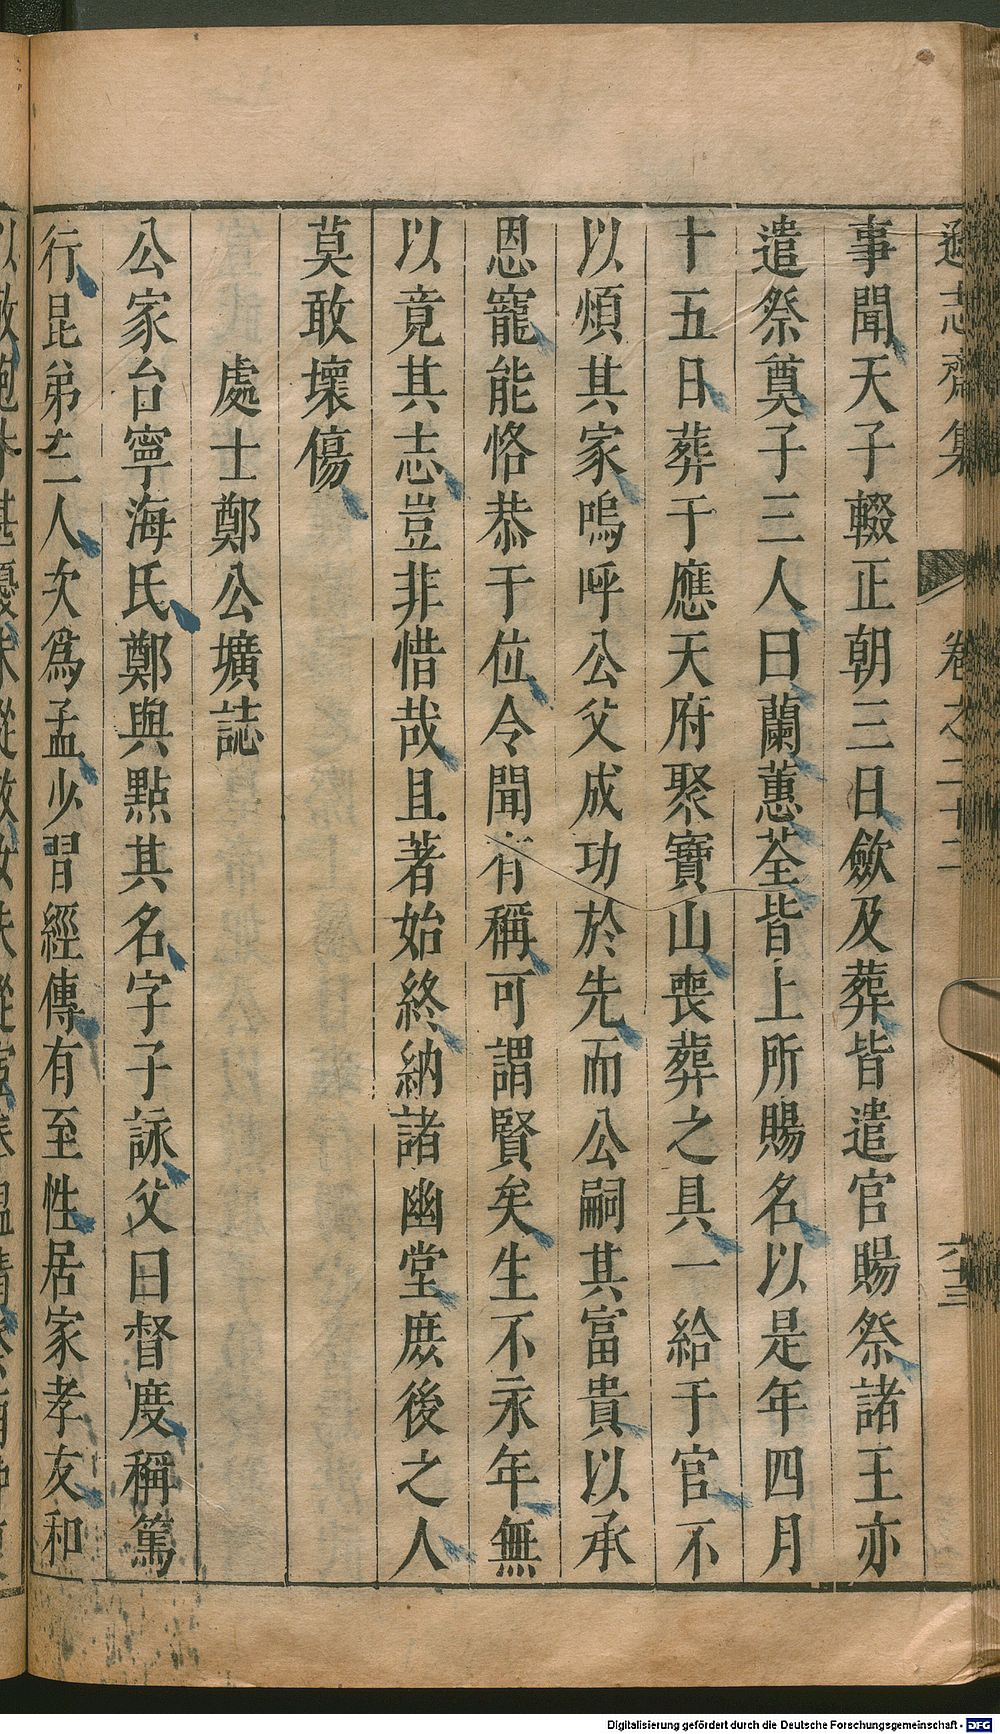 遜志齋集 卷之二十二 六十三
事聞天子輟正朝三日歛及葬皆遣官賜祭諸王亦
遣祭奠子三人曰蘭蕙荃皆上所賜名以是年四月
十五日葬于應天府聚寶山喪葬之具一給于官不
以煩其家嗚呼公父成功於先而公嗣其富貴以承
恩寵能恪恭于位令聞有稱可謂賢矣生不永年無
以竟其志豈非惜哉且著始終納諸幽堂庶後之人
莫敢壞傷
處士鄭公壙誌
公家台寧海氏鄭與點其名字子詠父曰督度稱篤
行昆弟三人次爲孟少習經傳有至性居家孝友和
Digitalisierung gefördert durch die Deutsche Forschungsgemeinschaft - DFG